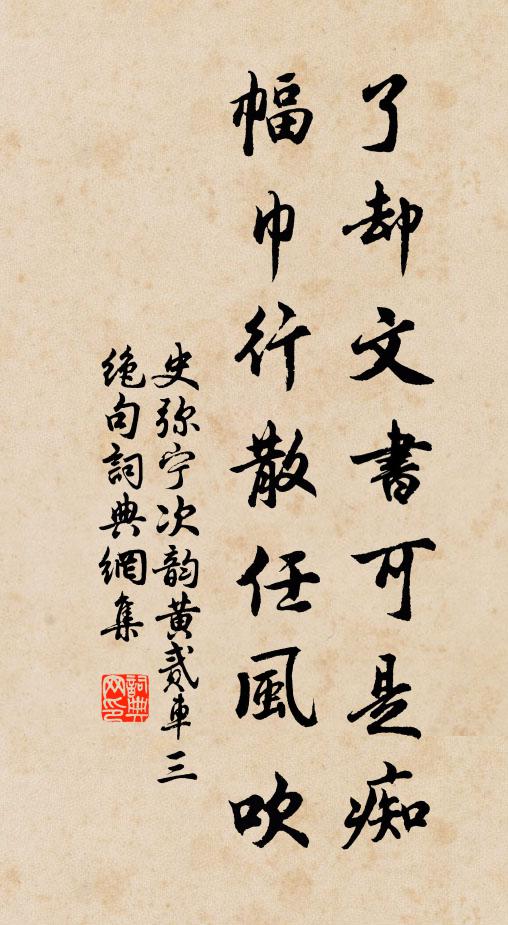 了却文書可是痴
幅巾行散任風吹
史弥宁次韵黄貳車三
絶句詞典網集
詞典
网印